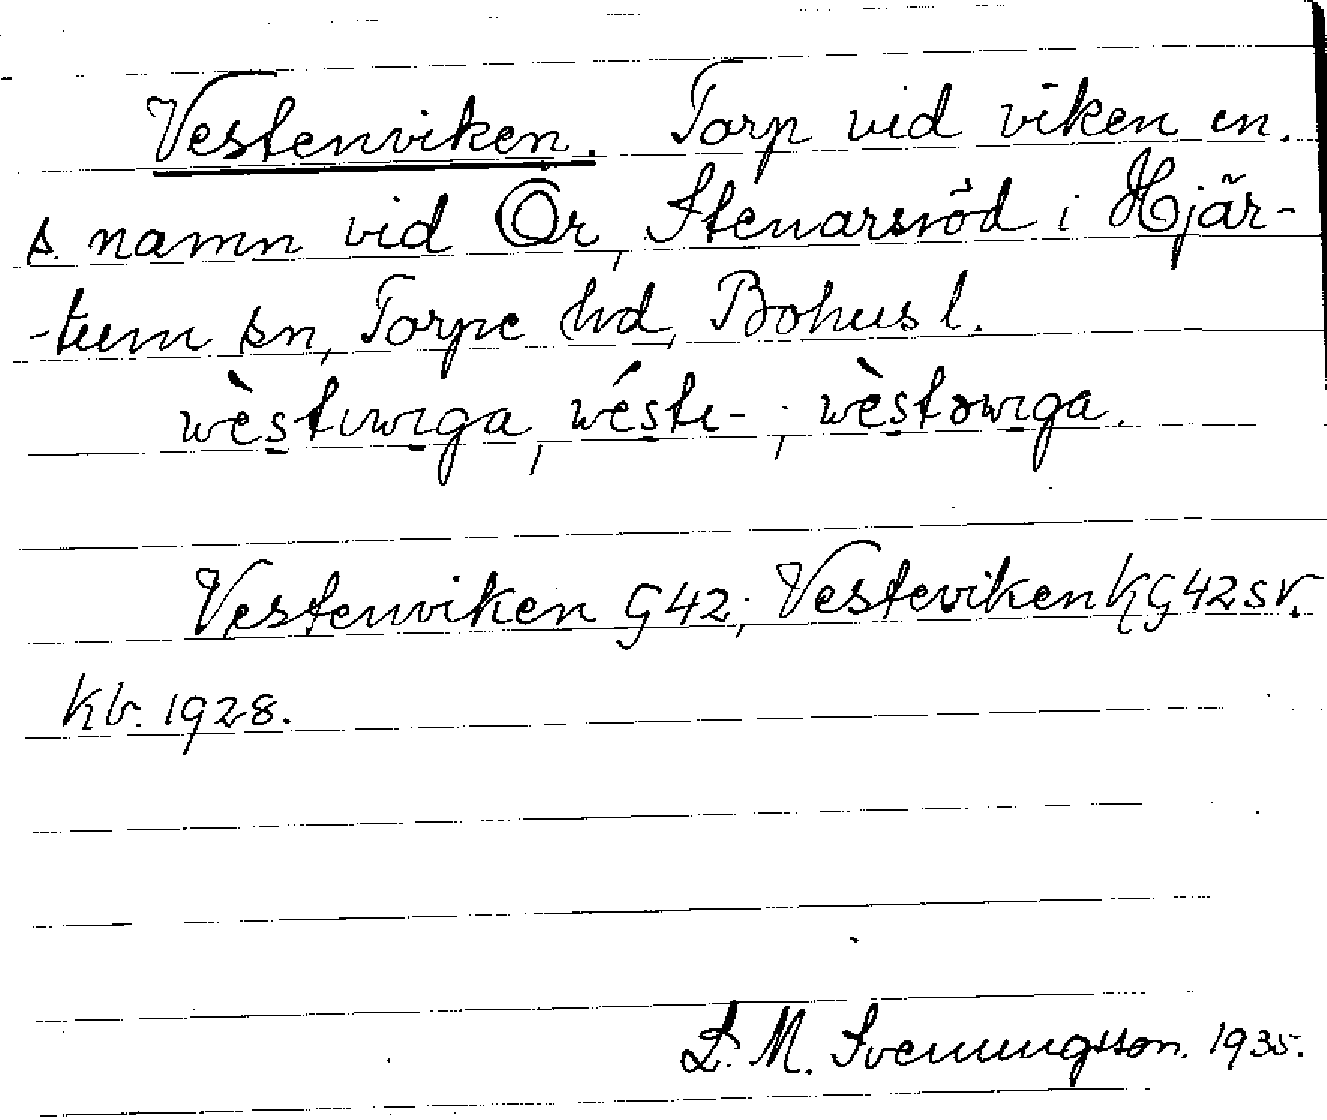 Vestenviken. Torp vid viken en.
s. namn vid Ör, Stenarsröd i Hjär-
-tum sn, Torpe hd, Bohusl.
wèstɩwɩga, wéstɩ-; wèstəwɩga.
Vestenviken G42; Vesteviken KG42SV.
Kb. 1928.
M. Svenungsson. 1935.